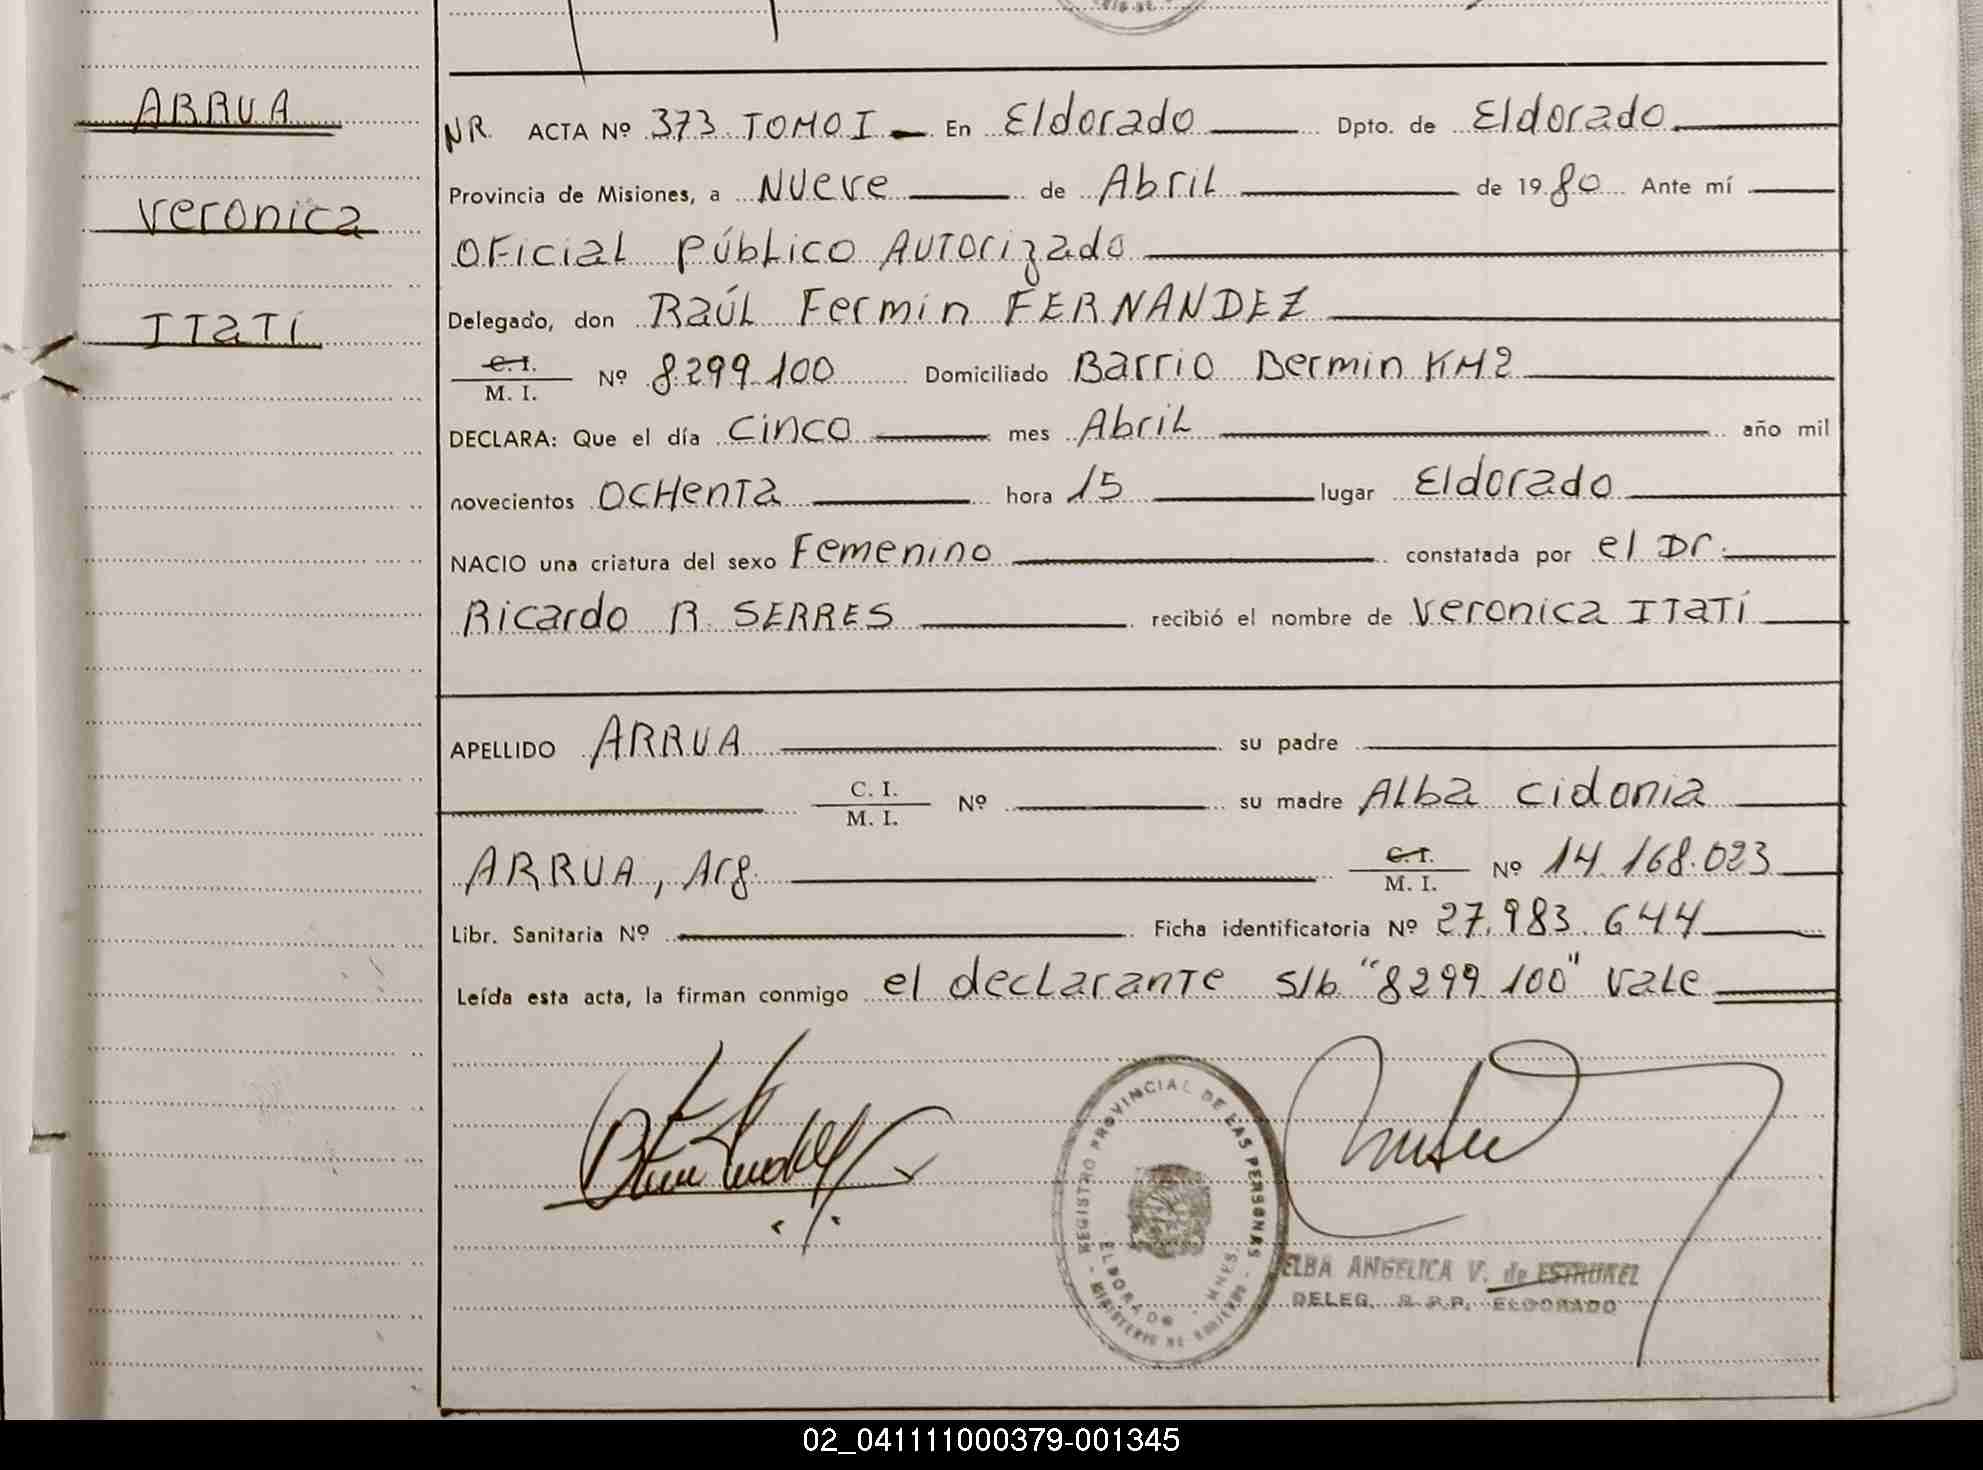 ARRUA
Veronica
ITATÍ
NR. ACTA Nº 373 TOMO I En Eldorado Dpto. de Eldorado
Provincia de Misiones, a Nueve de Abril de 1980 Ante mí
Oficial Público Autorizado
Delegado, don Raúl Fermin FERNANDEZ
C. I.
M. I. Nº 8.299.100 Domiciliado Barrio Bermin KM2
DECLARA: Que el día Cinco mes Abril año mil
novecientos OCHENTA hora 15 lugar Eldorado
NACIO una criatura del sexo Femenino constatada por el Dr.
Ricardo R. SERRES recibió el nombre de Veronica ITATÍ
APELLIDO ARRUA su padre
C. I.
M. I. Nº su madre Alba Cidonia
ARRUA, Arg. C. I.
M. I. Nº 14.168.023
Libr. Sanitaria Nº Ficha identificatoria Nº 27.983.644
Leída esta acta, la firman conmigo el declarante s/b "8299.100" Vale
REGISTRO PROVINCIAL DE LAS PERSONAS
ELDORADO - MNES.
- MINISTERIO DE GOBIERNO -
ELBA ANGELICA V. de ESTRUKEL
DELEG. R. P. P. ELDORADO
02_041111000379-001345